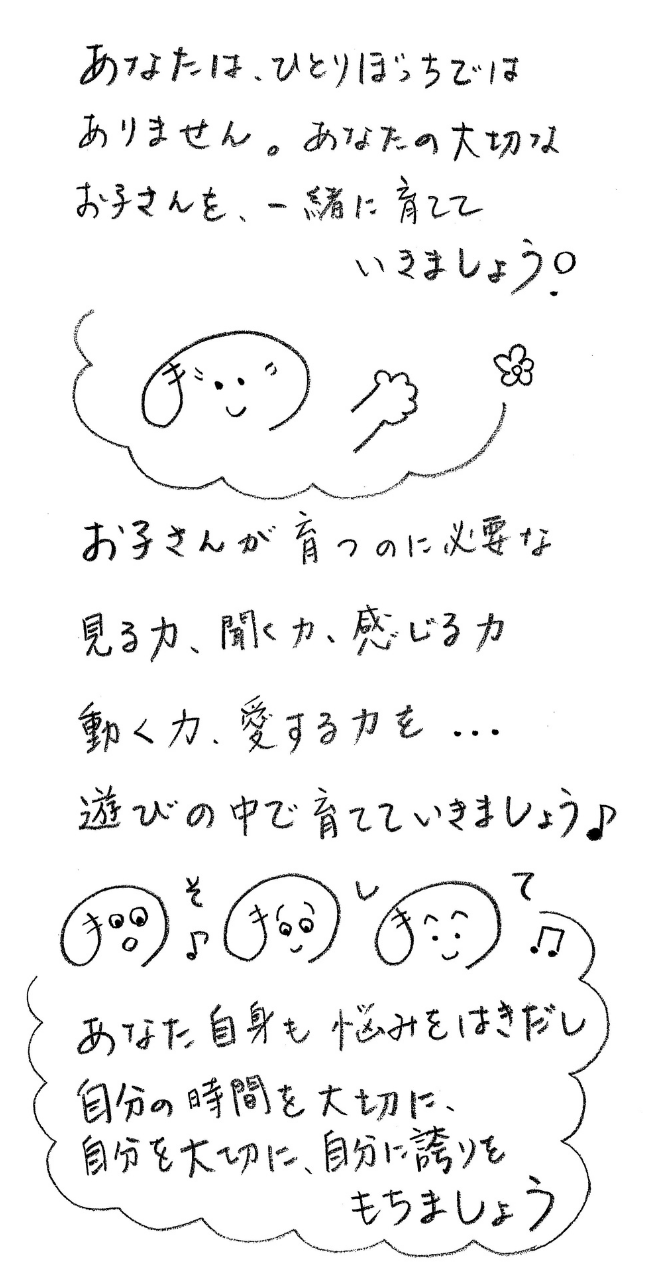 あなたは、ひとりぼっちでは
ありません。あなたの大切な
お子さんを、一緒に育てて
いきましょう!
き
お子さんが育つのに必要な
見る力、聞く力、感じる力
動く力、愛する力を…
遊びの中で育てていきましょう♪
き そ♪ き し き て♫
あなた自身も悩みをはきだし
自分の時間を大切に、
自分を大切に、自分に誇りを
もちましょう